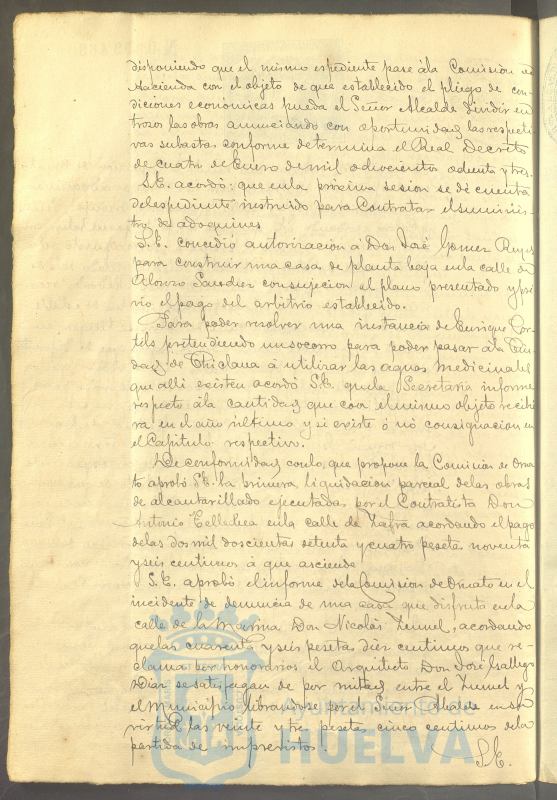 disponiendo que el mismo espediente pase á la Comision de
Hacienda con el objeto de que establecido el pliego de con
diciones economicas pueda el Señor Alcalde dividir en
trozos las obras anunciando con oportunidad las respecti
vas subastas conforme determina el Real Decreto
de cuatro de Enero de mil ochocientos ochenta y tres.
S.E. acordó: que en la próxima sesion se dé cuenta
del espediente instruido para Contratar el suminis
tro de adoquines
S.E. concedió autorizacion á Don José Gomez Reyes
para construir una casa de planta baja en la calle de
Alonzo con sujecion al plano presentado y pré
vio el pago del arbitrio establecido.
Para poder resolver una instancia de Enrique Cor
tils pretendiendo un socorro para poder pasar á la Ciu
dad de Chiclana á utilizar las aguas medicinales
que alli existen acordó S.E. que la Secretaria informe
respecto á la cantidad que con el mismo objeto recibi
ra en el año último y si existe ó nó consignacion en
el Capitulo respectivo.
De conformidad con lo que propone la Comision de Orna
to aprobó S.E. la primera liquidacion parcial de las obras
de alcantarillado ejecutadas por el Contratista Don
Antonio en la calle de Zafra acordando el pago
de las dos mil doscientas setenta y cuatro pesetas noventa
y seis centimos á que asciende
S.E. aprobó el informe de la Comision de Ornato en el
incidente de denuncia de una casa que disfruta en la
calle de la Marina Don Nicolás acordando
que las cuarenta y seis pesetas diez centimos que re-
clama por honorarios el Arquitecto Don José Gallego
Diaz se satisfagan de por mitad entre el y
el Municipio librandose por el Señor Alcalde en su
virtud las veinte y tres pesetas cinco centimos de la
partida de imprevistos.
S.E.
Ayuntamiento de
HUELVA